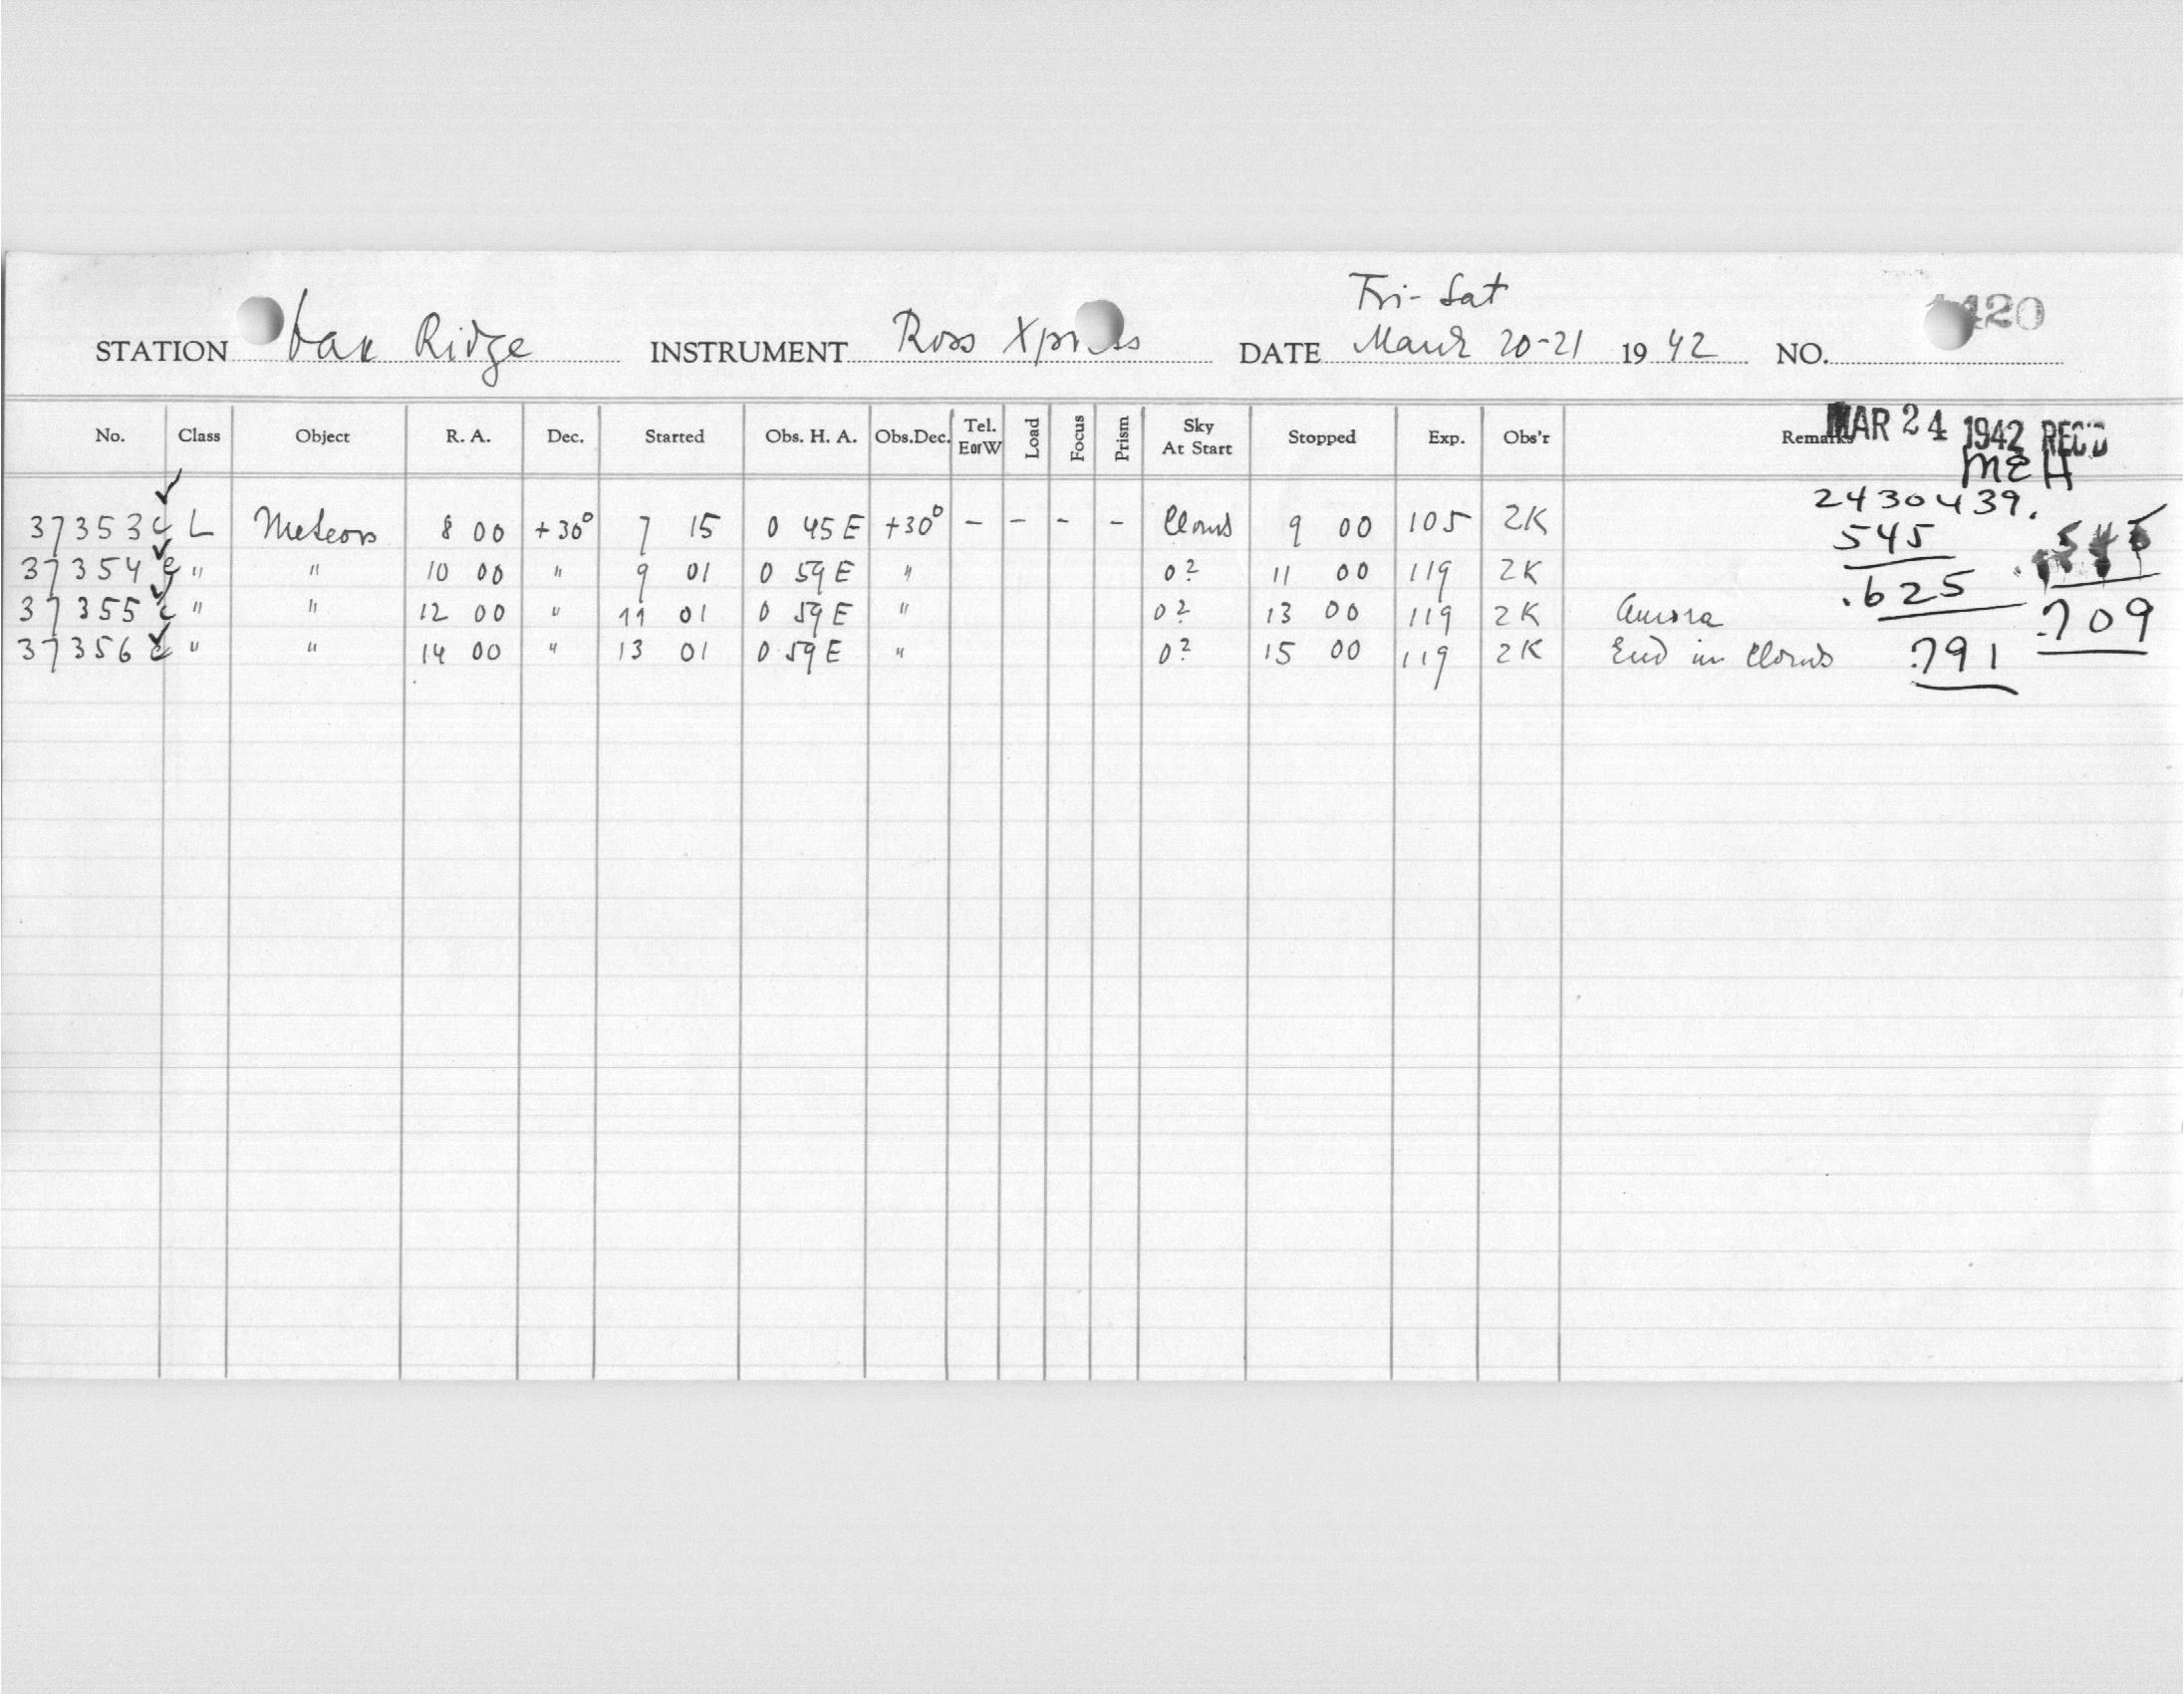 Fri - Sat
STATION Oak Ridge INSTRUMENT Ross Xpress DATE March 20-21 1942 NO. 420
No. Class Object R. A. Dec. Started Obs. H. A. Obs.Dec. Tel. E or W Load Focus Prism Sky At Start Stopped Exp. Obs'r Remarks
MAR 24 1942 REC'D
MEH
2430439.
37353 L Meteors 8 00 +30° 7 15 0 45 E +30° - - - - Clouds 9 00 105 ZK 545
37354 " " 10 00 " 9 01 0 59 E " 0? 11 00 119 ZK .625
37355 " " 12 00 " 11 01 0 59 E " 0? 13 00 119 ZK Aurora .709
37356 " " 14 00 " 13 01 0 59 E " 0? 15 00 119 ZK End in Clouds .791